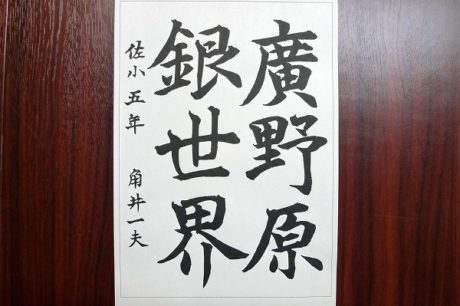 廣野原
銀世界
佐小五年 角井一夫